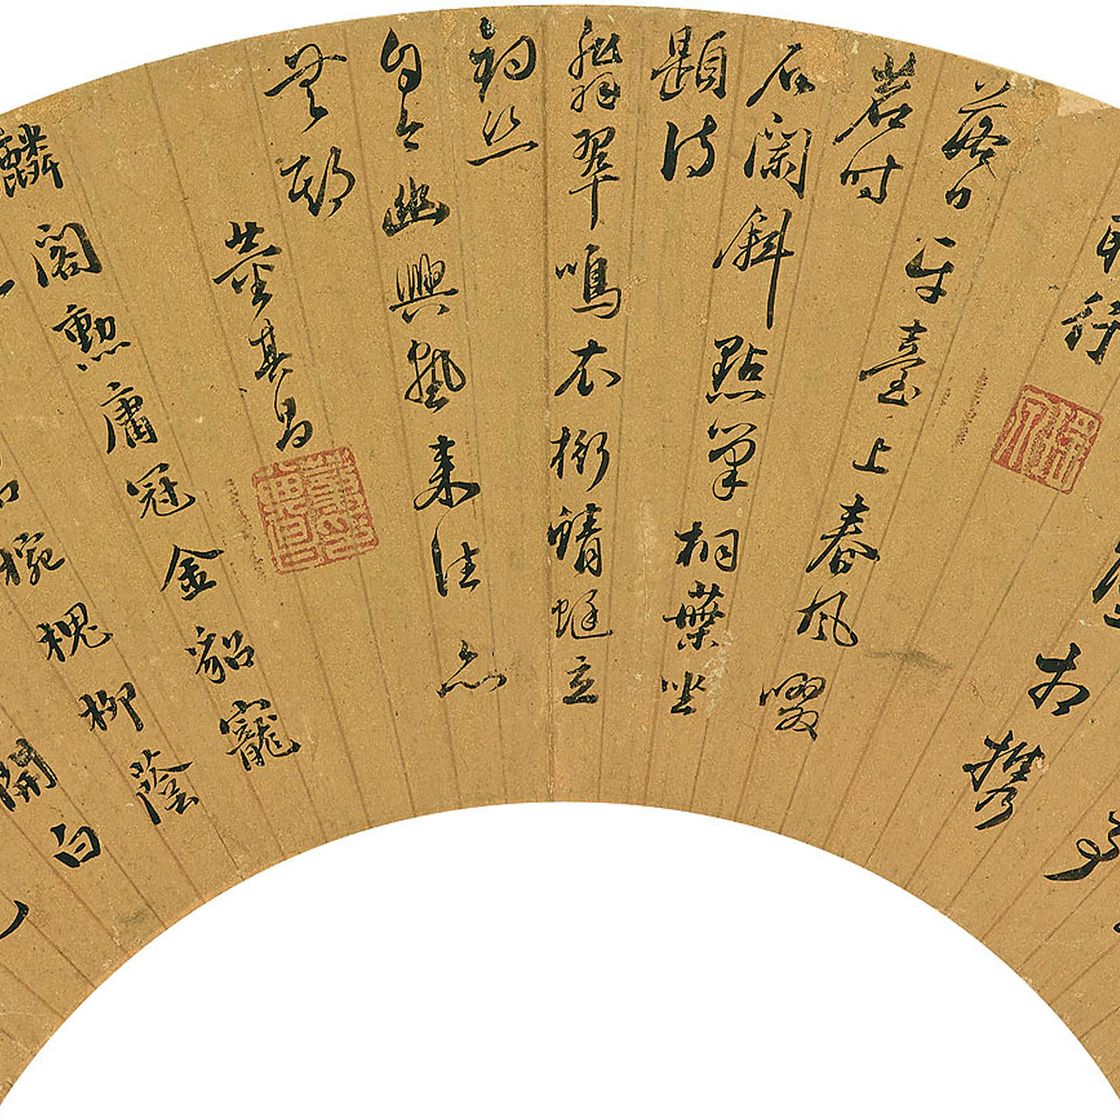 行
相攜
落日平臺上春風啜
茗时
石闌斜點筆桐葉坐
題詩
翡翠鳴衣桁蜻蜓立
釣絲
自今幽興熟來往亦
無期
董其昌
麟閣勳庸冠金貂寵
槐柳蔭
開白